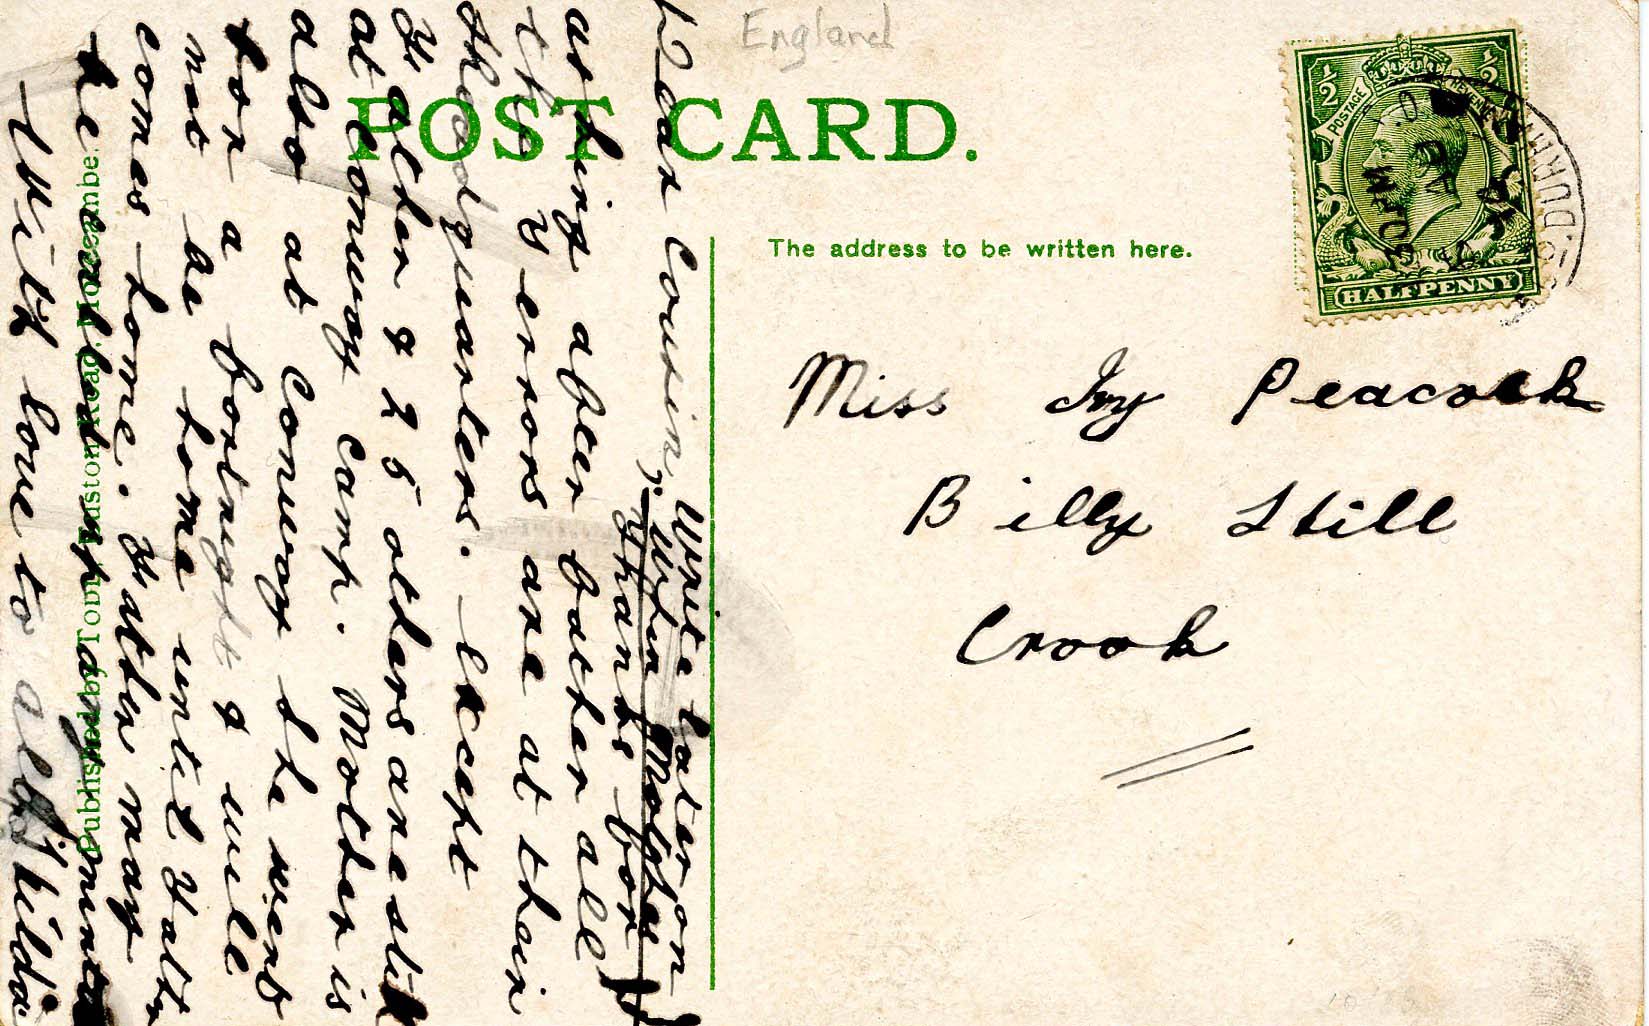 England
POST CARD.
The address to be written here.
POSTAGE
REVENUE
½
½
HALFPENNY
30 PM
Miss Ivy Peacock
Billy Still
Crook
Dear Cousin,
Write later on
Thanks for
asking after father all
the Yerrors are at their
Headquarters. Except
Father & 25 others are still
at Conway Camp. Mother is
also at Conway she went
for a fortnight & will
not be home until Father
comes home. Father may
be called up any minute
With love to all, Hilda
Published by Tom, Euston Road, Morecambe.